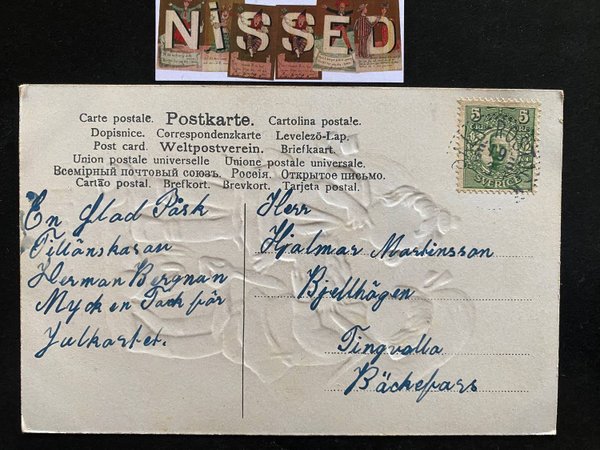 NiSSED
Carte postale. Postkarte. Cartolina postale.
Dopisnice. Correspondenzkarte Levelezö-Lap.
Post card. Weltpostverein. Briefkaart.
Union postale universelle Unione postale universale.
Всемірный почтовый союзъ. Россія. Открытое письмо.
Cartão postal. Brefkort. Brevkort. Tarjeta postal.
5 5
SVERIGE
En Glad Påsk
Tillönskas av
Herman Bergman
Mycken Tack för
Julkortet.
Herr
Hjalmar Martinsson
Bjellhögen
Tingvalla
Bäckefors